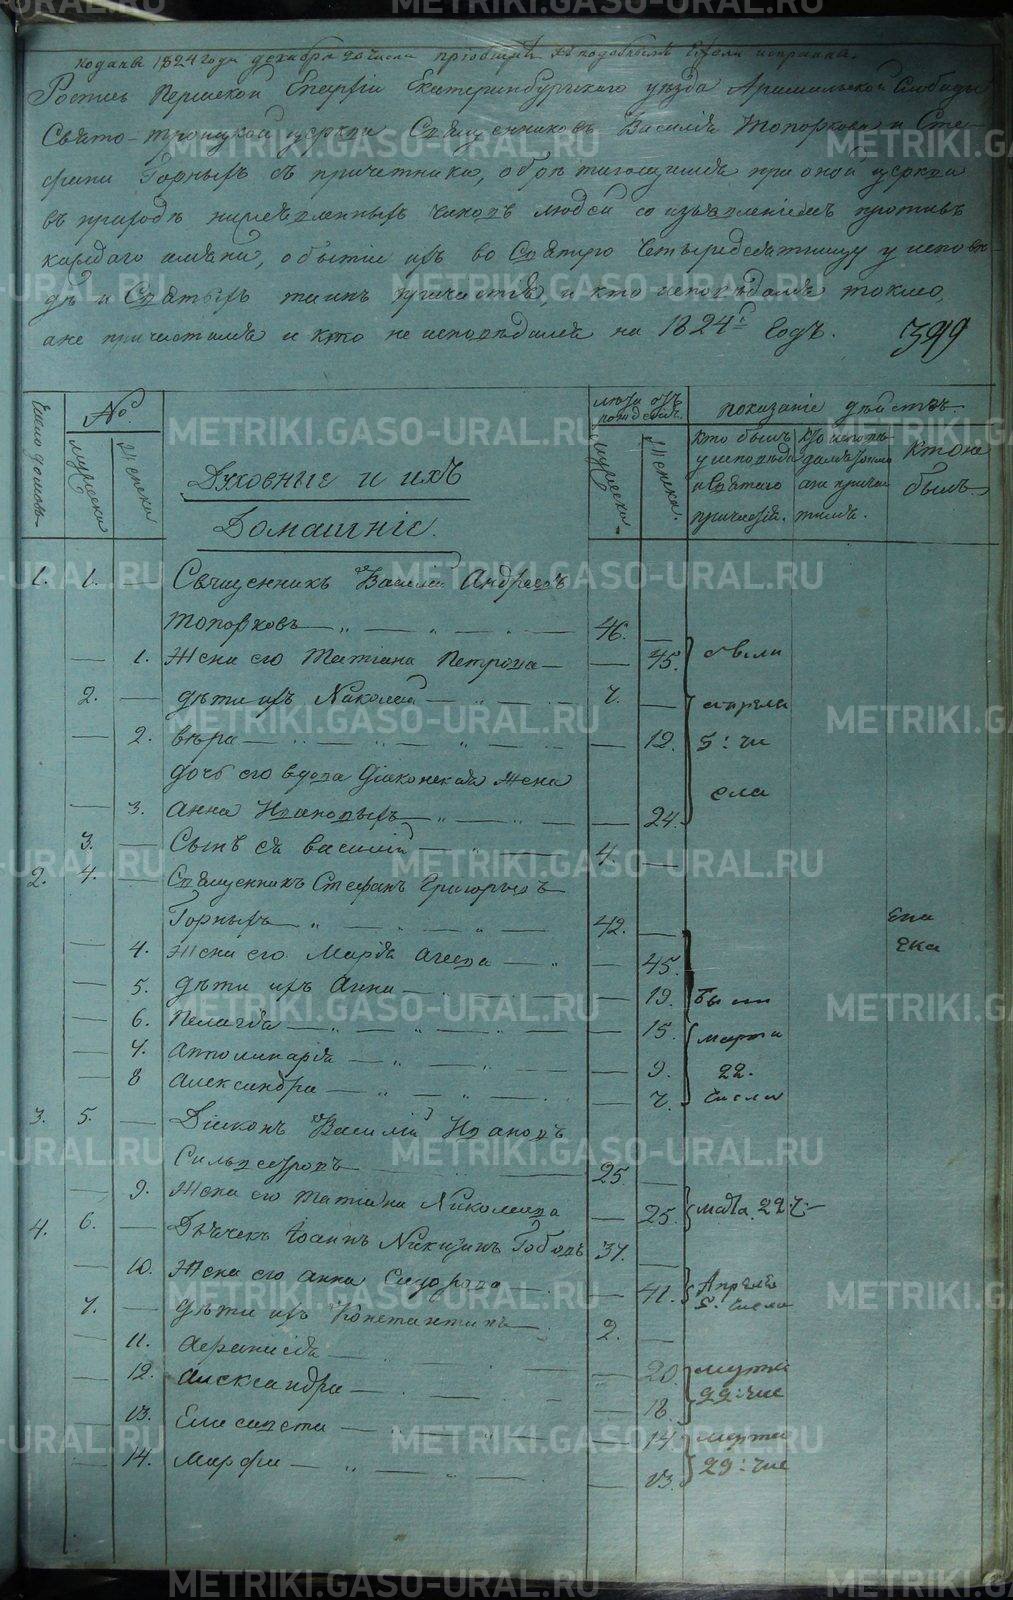 подана 1824 года декабря 20 числа
Роспись Пермской Епархіи Екатеринбургскаго уезда Арамильской Слободы
Свято-троицкой церкви Священниковъ Василія Топоркова и Сте-
фана Горныхъ съ причетники, обретающимся при оной церкви
въ приходъ нижеявленныхъ чиновъ людей со изъявленіемъ противъ
каждаго имяни, о бытіи ихъ во Святую Четыредесятницу у испове-
ди и Святыхъ таинъ причастія, и кто исповедался токмо,
а не причастился и кто не исповедался на 1824й Годъ. 399
Число домовъ
№
мужеска
женска
Духовные и ихъ
Домашніе.
лета отъ рожденія.
мужеска
женска.
показаніе действъ.
кто былъ у исповеди и Святаго причастія.
кто исповедался токмо а не причастился.
кто не былъ.
1. 1. — Священникъ Василій Андреевъ
Топорковъ — 46. —
— 1. Жена его Татіана Петрова — — 45. были
2. — дети ихъ Николай — 7. — апреля
— 2. вера — — 12. 5: чи
дочь его вдова Діаконская жена сла
— 3. Анна Иванова — 24.
3. — Сынъ ея василій — 4. —
2. 4. — Священникъ Стефанъ Григорьевъ
Горныхъ — 42. —
— 4. Жена его Марія — 45.
— 5. дети ихъ Анна — — 19. Были
— 6. Пелагея — — 15. марта
— 7. Апполинарія — — 9. 22.
— 8 Александра — — 7. числа
3. 5. — Діяконъ Василій Ивановъ
Сильвестровъ — 25. —
— 9. Жена его Татіана Николаева — 25. марта 22 ч:
4. 6. — Дьячекъ Іоаннъ Никитинъ 37. —
— 10. Жена его Анна Сидорова — 41. Апреля 5. числа
7. — дети ихъ Константинъ — 2. —
— 11. Афанасія — — 20. марта
— 12. Александра — — 18. 22: чис
— 13. Елисавета — — 14. марта
— 14. Марфа — — 13. 29: чис
METRIKI.GASO-URAL.RU